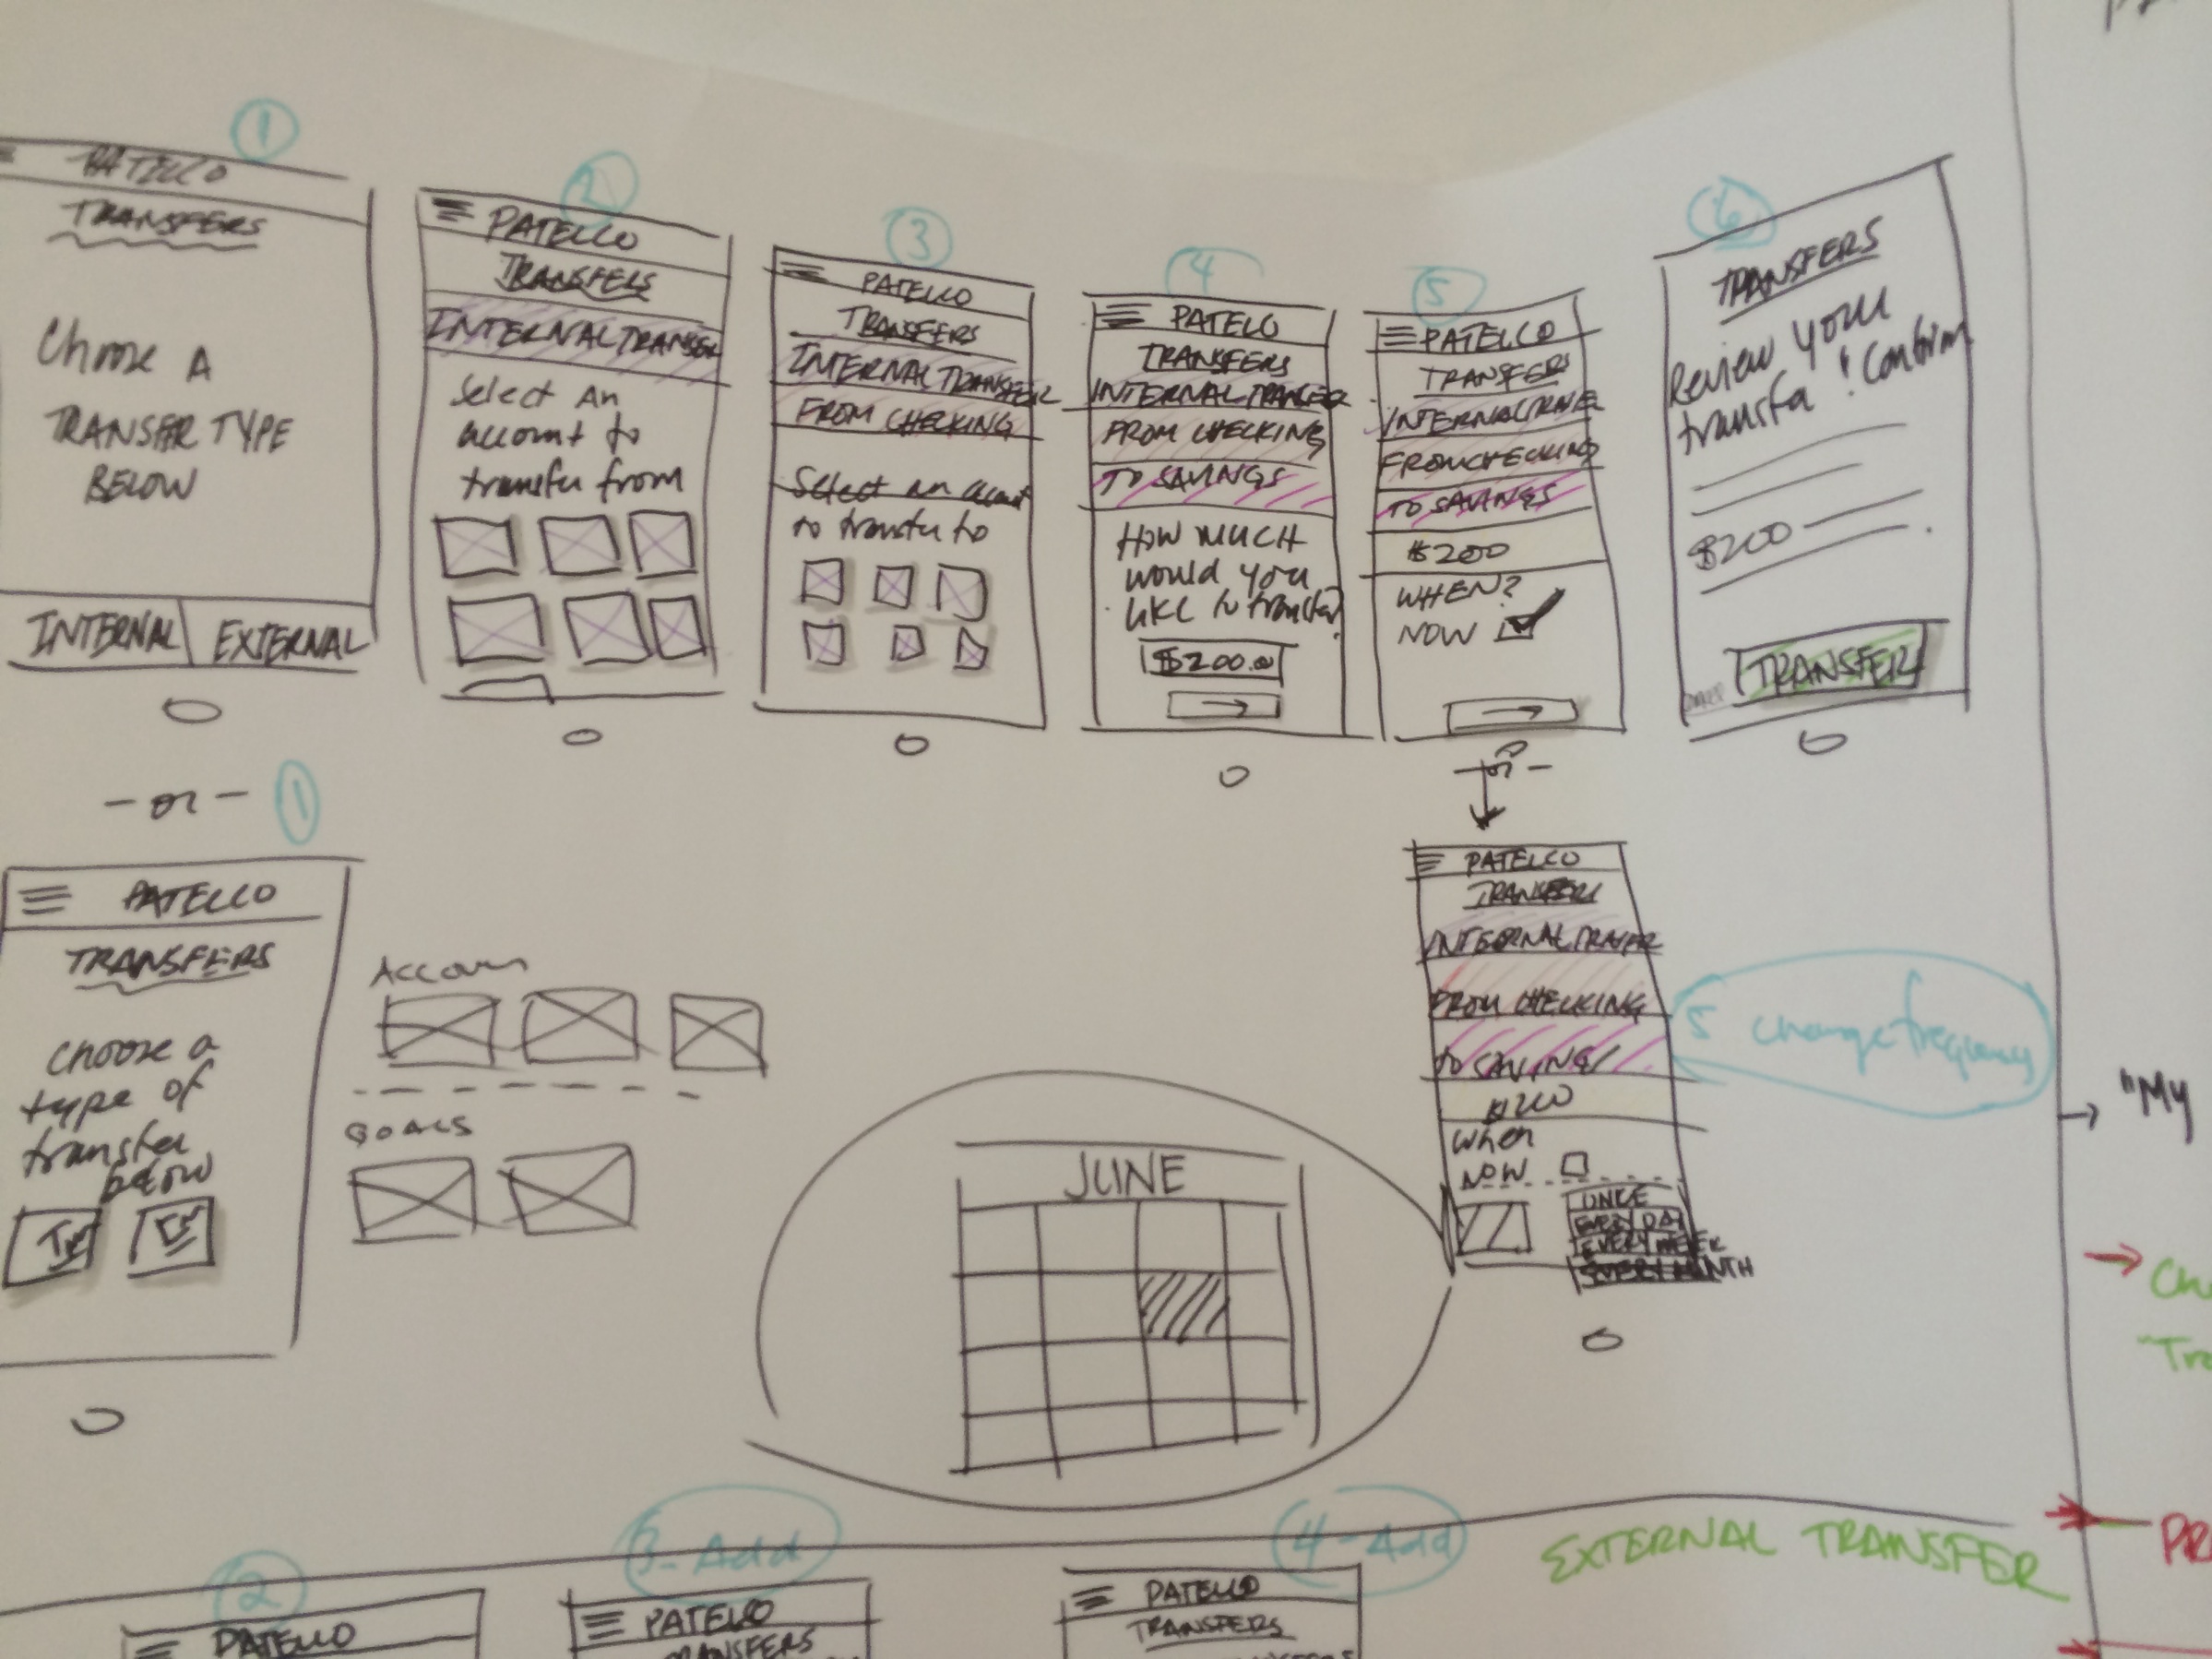 1
PATELCO
TRANSFERS
Choose A
TRANSFER TYPE
BELOW
INTERNAL
EXTERNAL
2
PATELCO
TRANSFERS
INTERNAL TRANSFER
Select An
account to
transfer from
3
PATELCO
TRANSFERS
INTERNAL TRANSFER
FROM CHECKING
Select an account
to transfer to
4
PATELCO
TRANSFERS
INTERNAL TRANSFER
FROM CHECKING
TO SAVINGS
HOW MUCH
would you
like to transfer
$200.00
5
PATELCO
TRANSFERS
FROM CHECKING
TO SAVINGS
$200
WHEN?
NOW
6
TRANSFERS
Review your
transfer
Confirm
$200
TRANSFER
- or -
1
PATELCO
TRANSFERS
choose a
type of
transfer
below
GOALS
JUNE
- or -
PATELCO
TRANSFERS
FROM CHECKING
TO SAVINGS
$200
When
NOW
ONCE
EVERY DAY
EVERY WEEK
EVERY MONTH
5 change frequency
"My
EXTERNAL TRANSFER
2
PATELCO
3-Add
PATELCO
TRANSFERS
4-Add
PATELCO
TRANSFERS